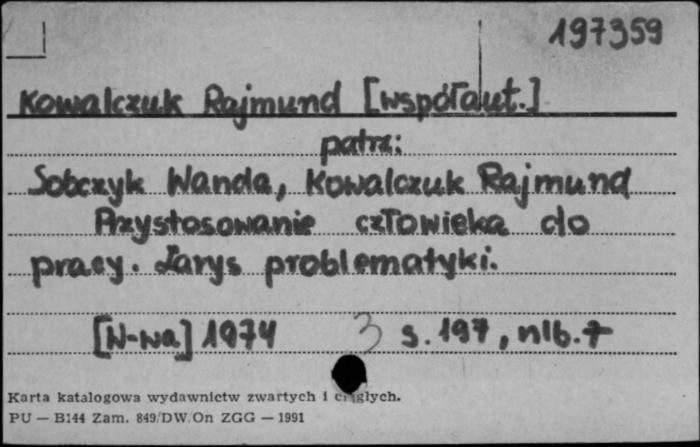 197359
Kowalczuk Rajmund [współaut.]
patrz:
Sobczyk Wanda, Kowalczuk Rajmund
Przystosowanie człowieka do
pracy. Zarys problematyki.
[W-wa] 1974 3 s. 197, nlb. 7
Karta katalogowa wydawnictw zwartych i ciągłych.
PU — B144 Zam. 849/DW/On ZGG — 1991